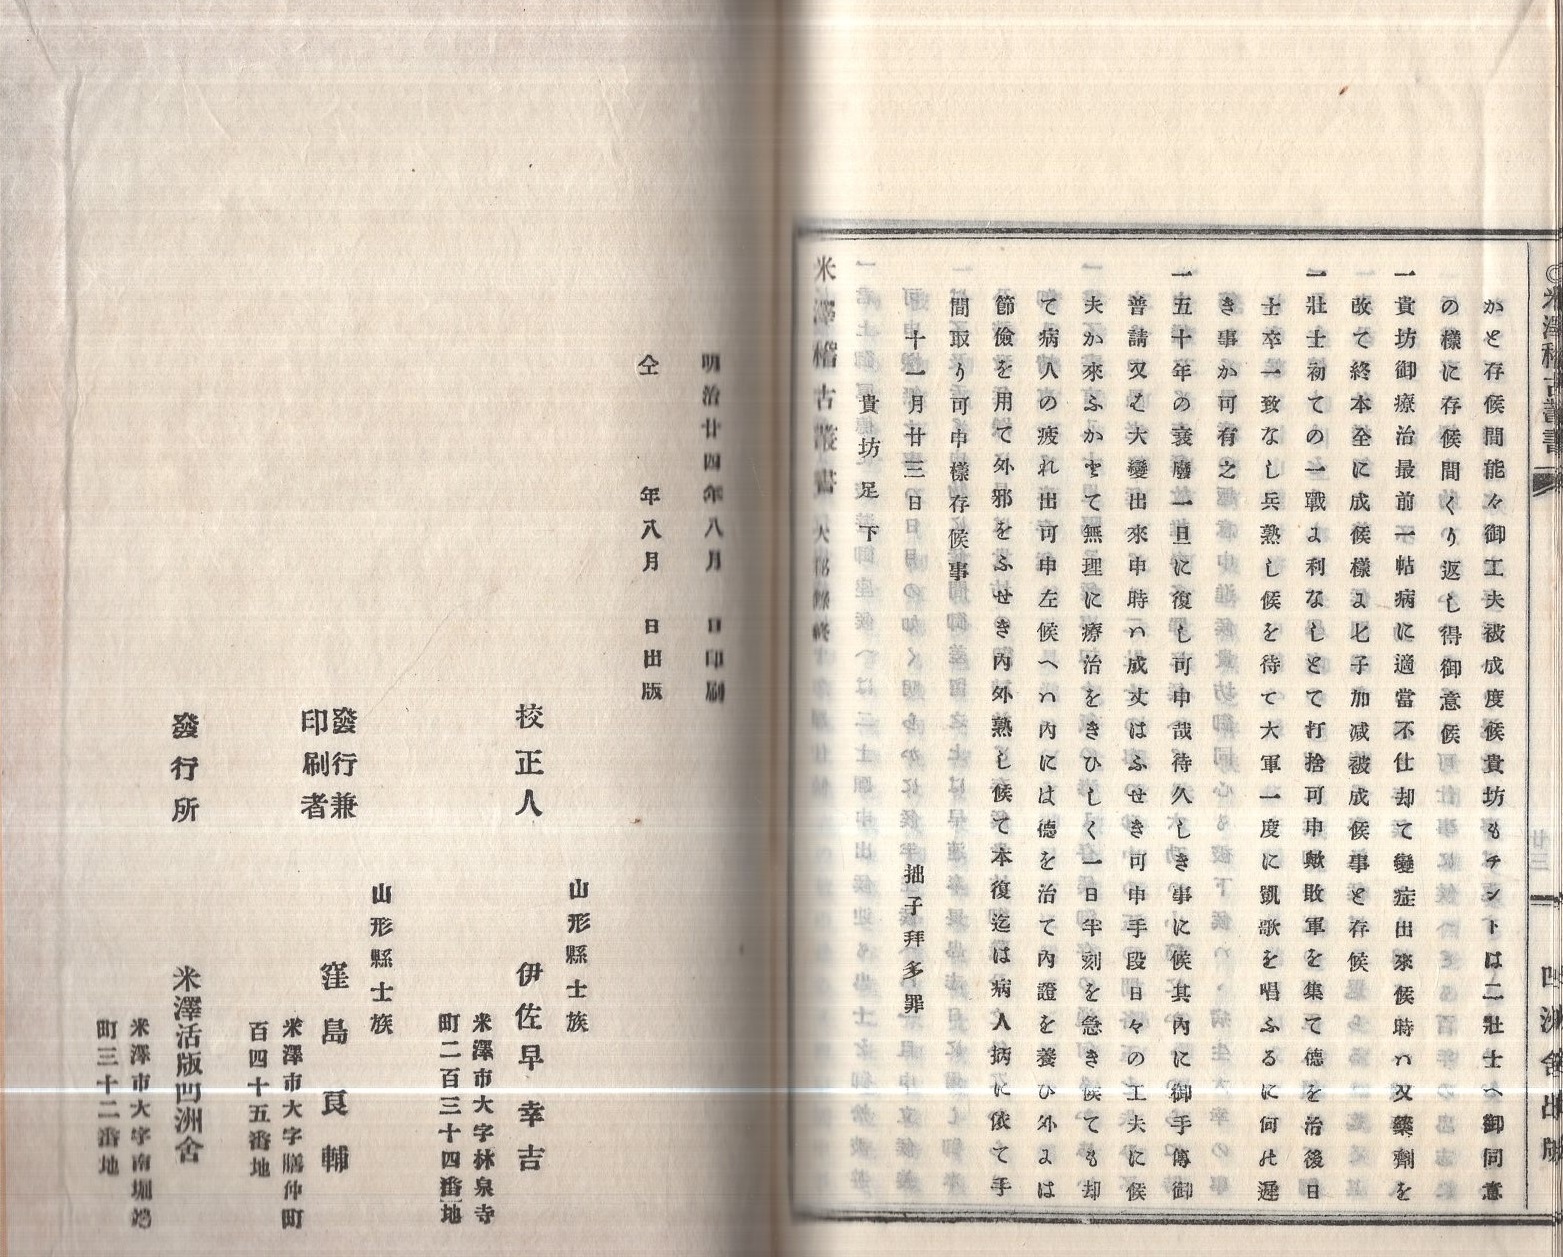 米澤稽古叢書
廿三
凹洲舍出版
かと存候間能々御工夫被成度候貴坊もチントは二壯士へ御同意
の樣に存候間くり返し得御意候
一貴坊御療治最前一帖病に適當不仕却て變症出來候時ハ又藥劑を
改て終本全に成候樣よ七子加减被成候事と存候
一壯士初ての一戰よ利なしとて打捨可申歟敗軍を集て德を治後日
士卒一致なし兵熟し候を待て大軍一度に凱歌を唱ふるに何の遲
き事か可有之
一五十年の衰廢一旦に復し可申哉待久しき事に候其內に御手傳御
普請又も大變出來申時ハ成丈はふせき可申手段日々の工夫に候
夫か來ふかとて無理に療治をきひしく一日半刻を急き候ても却
て病人の疲れ出可申左候へハ內には德を治て內證を養ひ外よは
節儉を用て外邪をふせき內外熟し候て本復迄は病人柄に依て手
間取り可申樣存候事
十一月廿三日 拙子拜多罪
貴坊足下
米澤稽古叢書
明治廿四年八月 日印刷
仝 年八月 日出版
山形縣士族
校正人 伊佐早幸吉
米澤市大字林泉寺
町二百三十四番地
山形縣士族
發行兼
印刷者 窪島良輔
米澤市大字膳仲町
百四十五番地
發行所 米澤活版凹洲舍
米澤市大字南堀端
町三十二番地